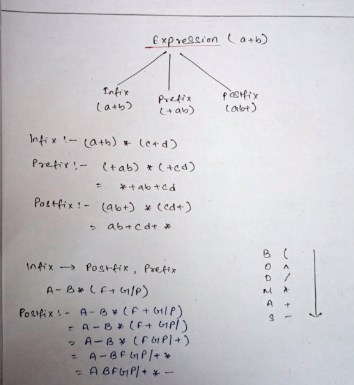 Expression (a+b)
Infix Prefix Postfix
(a+b) (+ab) (ab+)
Infix :- (a+b) * (c+d)
Prefix :- (+ab) * (+cd)
= *+ab+cd
Postfix :- (ab+) * (cd+)
= ab+cd+ *
Infix → Postfix, Prefix
A-B*(F+G/P)
Postfix :- A-B*(F+G/P)
= A-B*(F+GP/)
= A-B*(FGP/+)
= A-BFGP/+*
= ABFGP/+*-
B (
O ^
D /
M *
A +
S -